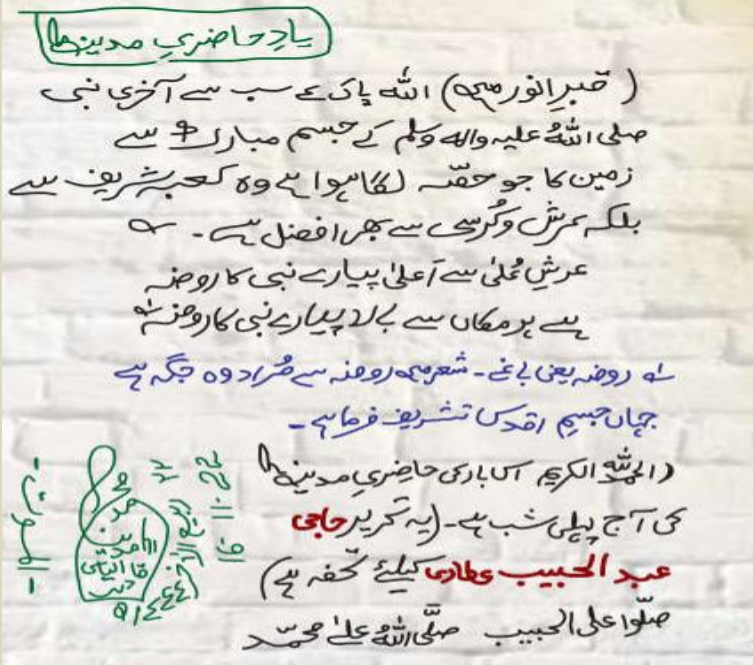 یادِ حاضریِ مدینہ
(قبرِ انور میں) اللہ پاک کے سب سے آخری نبی
صلی اللہُ علیہ والہ وسلم کے جسم مبارک سے
زمین کا جو حصّہ لگا ہوا ہے وہ کعبہ شریف سے
بلکہ عرش و کُرسی سے بھی افضل ہے۔
عرشِ عُلیٰ سے اَعلیٰ پیارے نبی کا روضہ
ہے ہر مکاں سے بالا پیارے نبی کا روضہ
روضہ یعنی باغ۔ شعر میں روضہ سے مُراد وہ جگہ ہے
جہاں جسمِ اقدس تشریف فرما ہے۔
(الحمدُللہِ الکریم اس بار کی حاضریِ مدینہ
کی آج پہلی شب ہے۔ (یہ تحریر حاجی
عبد الحبیب عطاری کیلئے تحفہ ہے)
صلّوا علی الحبیب صلَّی اللہُ علیٰ محمّد
محمد
ربیع الآخر
۱۴۴۴ھ